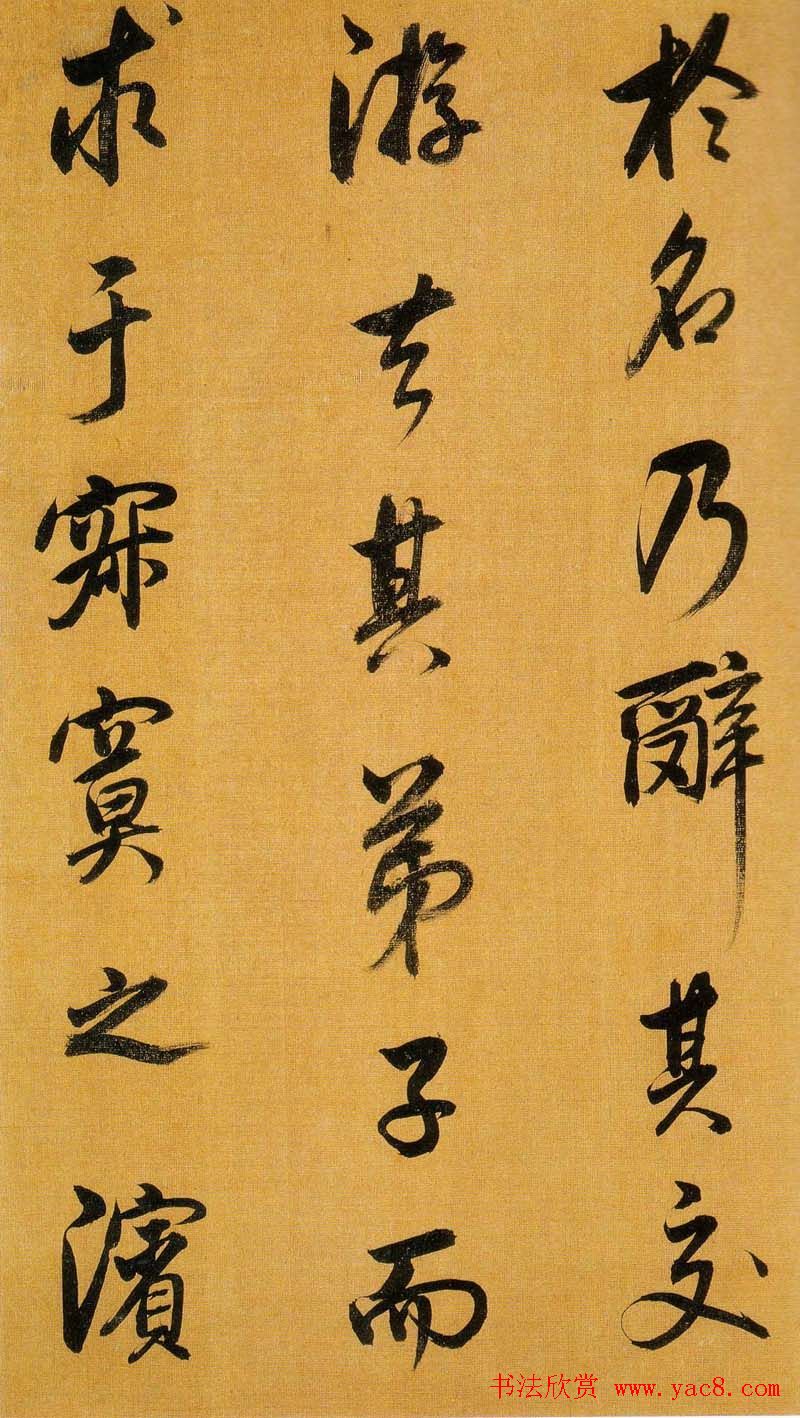 於名乃辭其交
游去其弟子而
求于寂寞之濱
书法欣赏 www.yac8.com